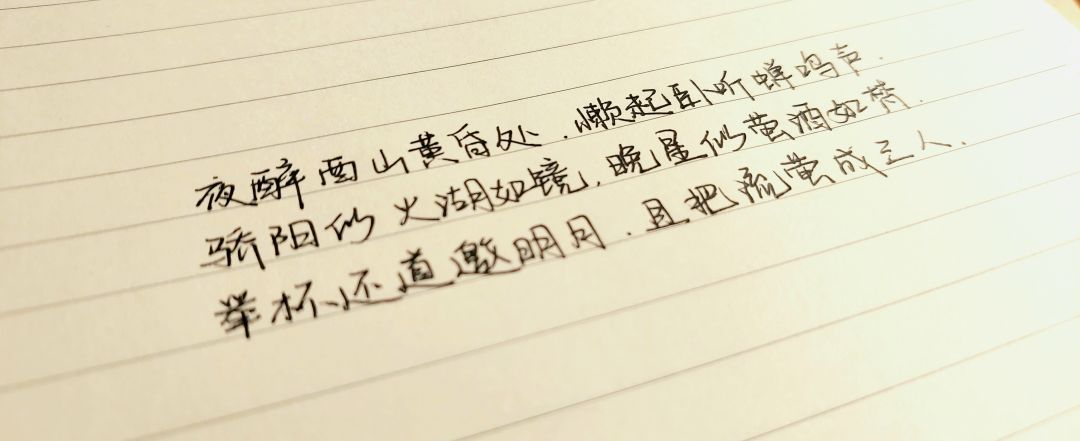 夜醉西山黄昏处.懒起卧听蝉鸣声.
骄阳似火湖如镜.晚星似萤酒如
举杯还道邀明月.且把流萤成三人.